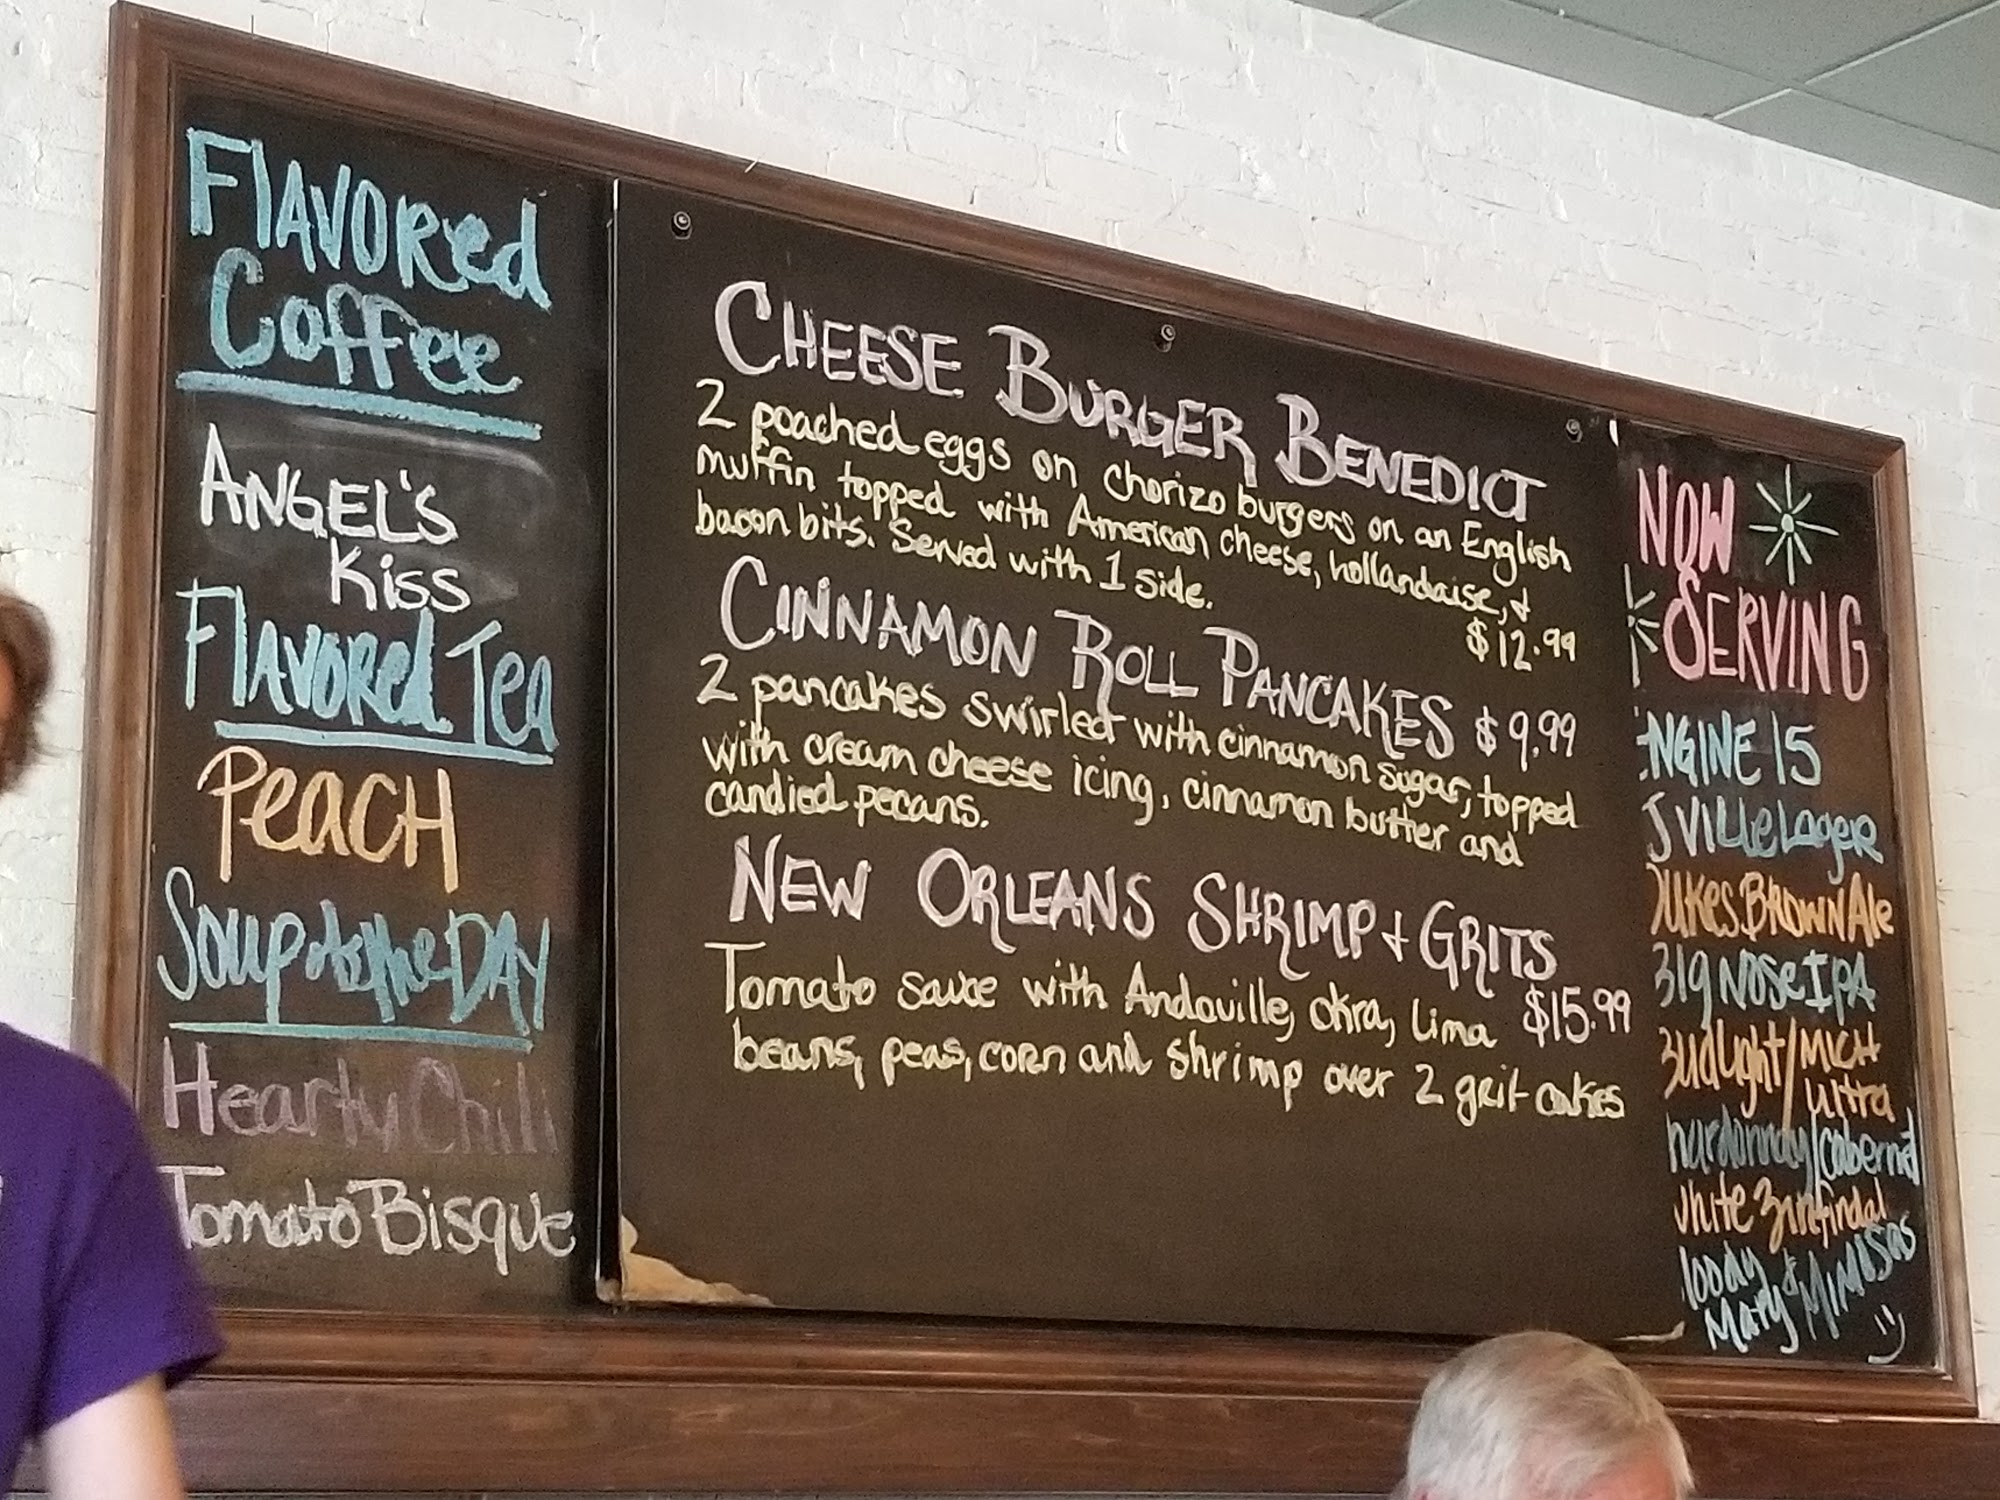 FlAVORed
Coffee
ANGEL'S
Kiss
FlAVORed Tea
PeacH
Soup of the DAY
Hearty Chili
Tomato Bisque
CHEESE BURGER BENEDICT
2 poached eggs on chorizo burgers on an English
muffin topped with American cheese, hollandaise, &
bacon bits. Served with 1 side.
$12.99
CINNAMON ROLL PANCAKES $9.99
2 pancakes swirled with cinnamon sugar, topped
with cream cheese icing, cinnamon butter and
candied pecans.
NEW ORLEANS SHRIMP & GRITS
Tomato sauce with Andouille, okra, lima $15.99
beans, peas, corn and shrimp over 2 grit cakes
NOW
SERVING
ENGINE 15
JVille Lager
DUKES BROWN Ale
BIG NOSE IPA
Budlight/MICH
Ultra
hardonnay/cabernet
White Zinfindal
loody
Mary & MIMOSAS